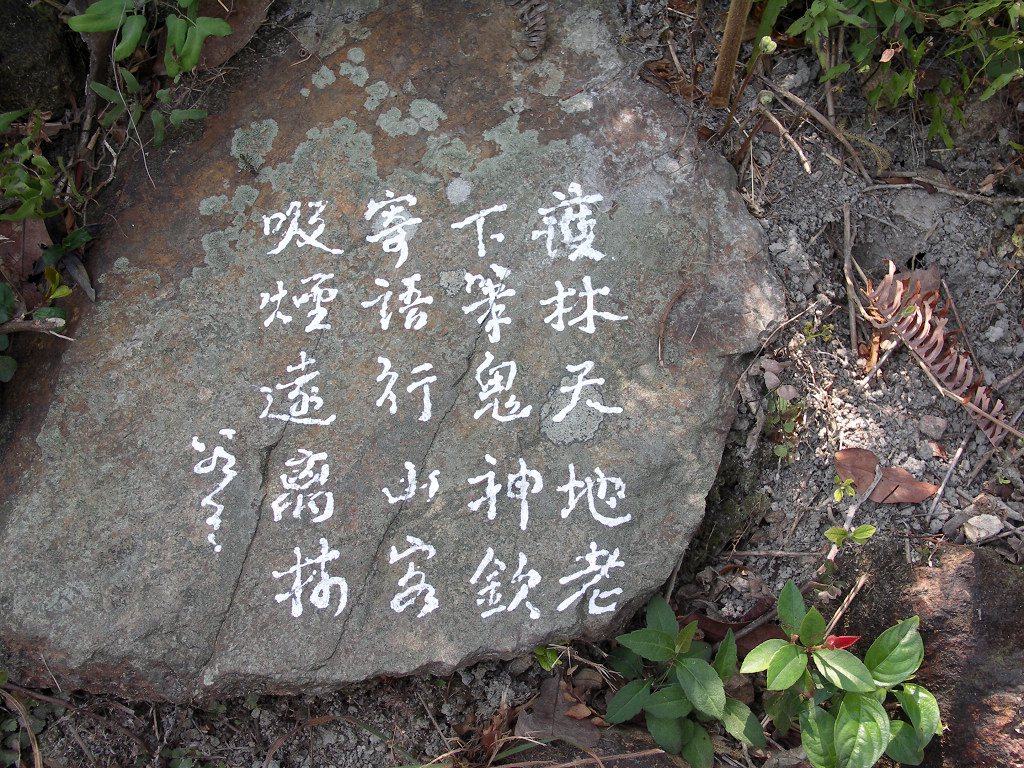 護林天地老
下筆鬼神欽
寄語行山客
啜煙遠離林